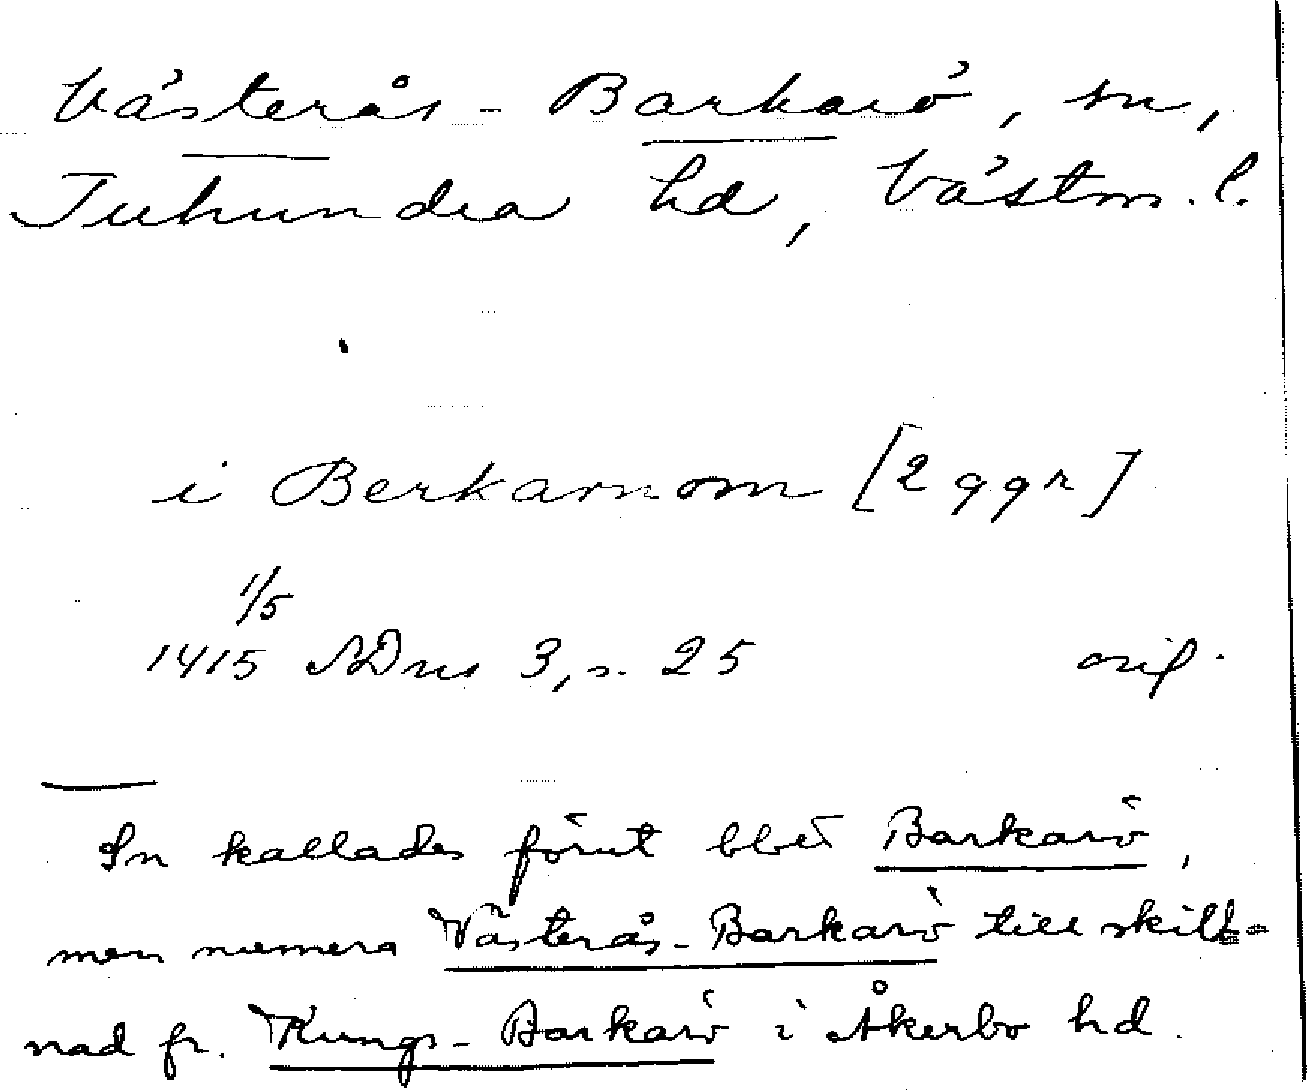 Västerås-Barkarö, sn,
Tuhundra hd, Västm. l.
i Berkarnom [2 ggr]
1/5
1415 SDns 3, s. 25 orig.
Sn kallades förut blot Barkarö,
men numera Västerås-Barkarö till skill-
nad fr. Kungs-Barkarö i Åkerbo hd.